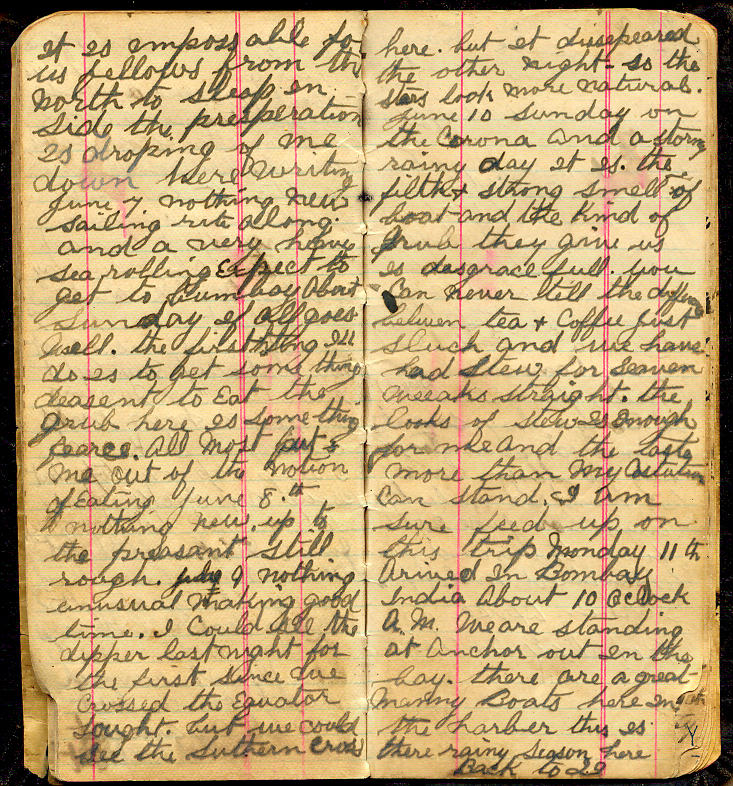 it is imposs able for
us fellows from the
North to sleep in
side the presperation
is droping of me
down here Writing
June 7 nothing New
sailing rite along.
and a very heavy
sea rolling Expect to
get to Bumbay About
Sunday if all goes
Well. the first thing Ill
do is to get some thing
deasent to Eat the
grub here is some thing
fearce. All Most put
me out of the notion
of Eating June 8.th
nothing new. up to
the preasant still
rough. June 9 nothing
unusual making good
time. I Could see the
dipper last night for
the first since we
crossed the Equator
sought. but we could
see the Suthern Cross
here. but it dissepeared
the other night. so the
stars look more natural.
June 10 Sunday on
the Corona and a stormy
rainy day it is. the
filth + strong smell of
boat and the kind of
grub they give us
is desgrace full. you
Can never tell the
between tea + Coffee just
sluch and we have
had stew for seaven
weeaks straight. the
looks of stew is Enough
for me and the taste
more than My
Can stand. I am
sure feed up on
this trip Monday 11th
Arived In Bombay
India About 10 oclock
A.M. We are standing
at Anchor out in the
bay. there are a great
Manny Boats here in
the harber this is
there rainy season here
Back to 29